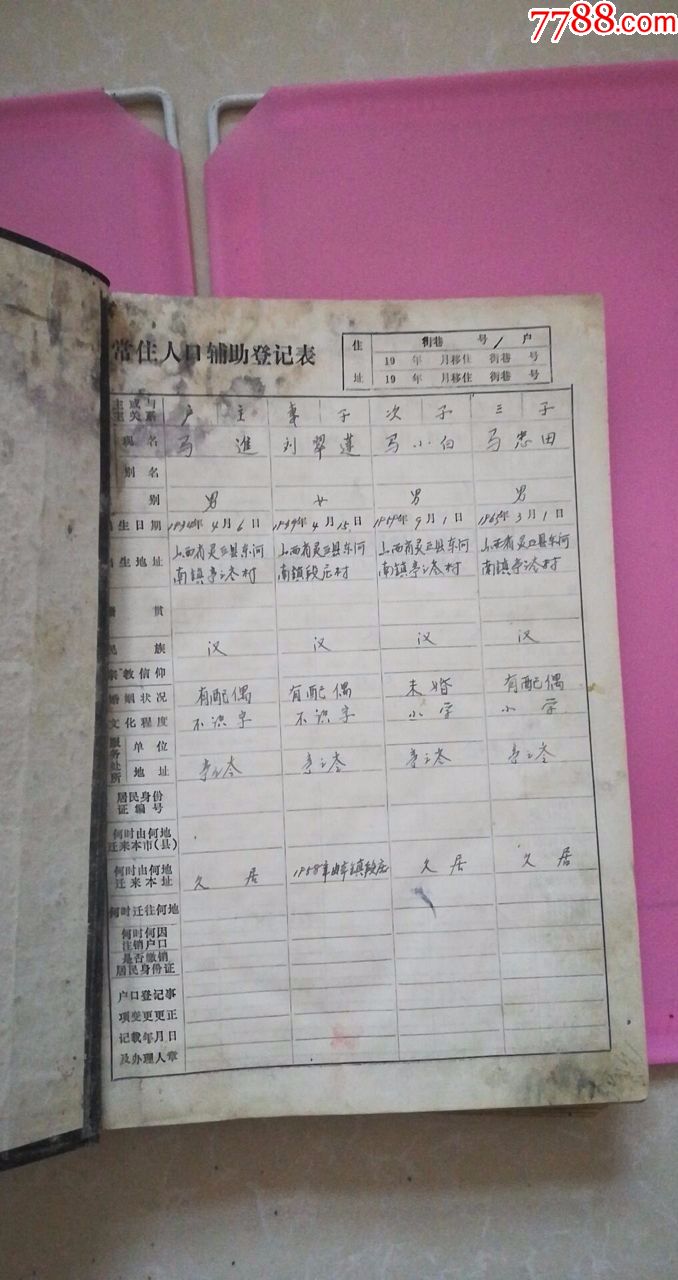 7788.com
常住人口辅助登记表
住 街巷 号 / 户
19 年 月移住 街巷 号
址 19 年 月移住 街巷 号
主或与
主关系 户主 妻子 次子 三子
现名 马進 刘翠莲 马小白 马忠田
别名
别 男 女 男 男
生日期 年4月6日 年4月15日 年9月1日 1965年3月1日
生地址 山西省灵丘县东河 山西省灵丘县东河 山西省灵丘县东河 山西省灵丘县东河
南镇 村 南镇段庄村 南镇 村 南镇 村
贯
民族 汉 汉 汉 汉
宗教信仰
婚姻状况 有配偶 有配偶 未婚 有配偶
文化程度 不识字 不识字 小学 小学
服务处所 单位
地址
居民身份
证编号
何时由何地
迁来本市(县)
何时由何地
迁来本址 久居 1958年由 镇段庄 久居 久居
何时迁往何地
何时何因
注销户口
是否缴销
居民身份证
户口登记事
项变更更正
记载年月日
及办理人章